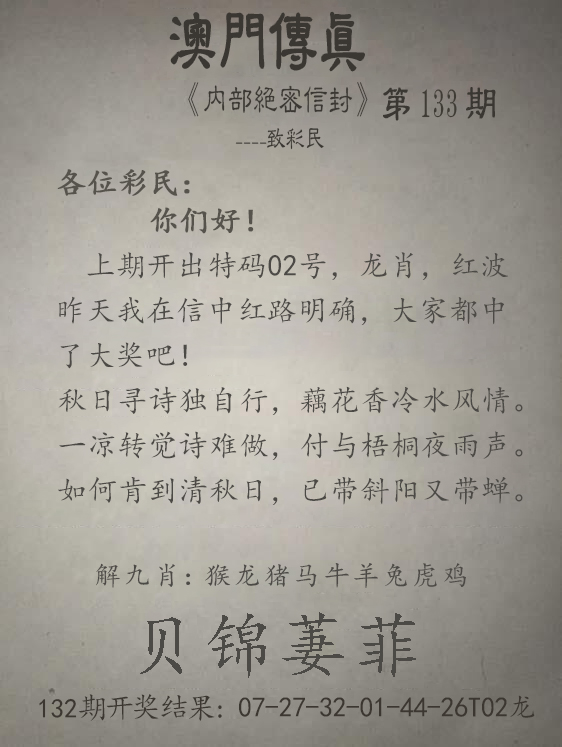 澳門傳眞
《内部絕密信封》第133期
----致彩民
各位彩民：
你们好！
上期开出特码02号，龙肖，红波
昨天我在信中红路明确，大家都中
了大奖吧！
秋日寻诗独自行，藕花香冷水风情。
一凉转觉诗难做，付与梧桐夜雨声。
如何肯到清秋日，已带斜阳又带蝉。
解九肖：猴龙猪马牛羊兔虎鸡
贝锦萋菲
132期开奖结果：07-27-32-01-44-26T02龙